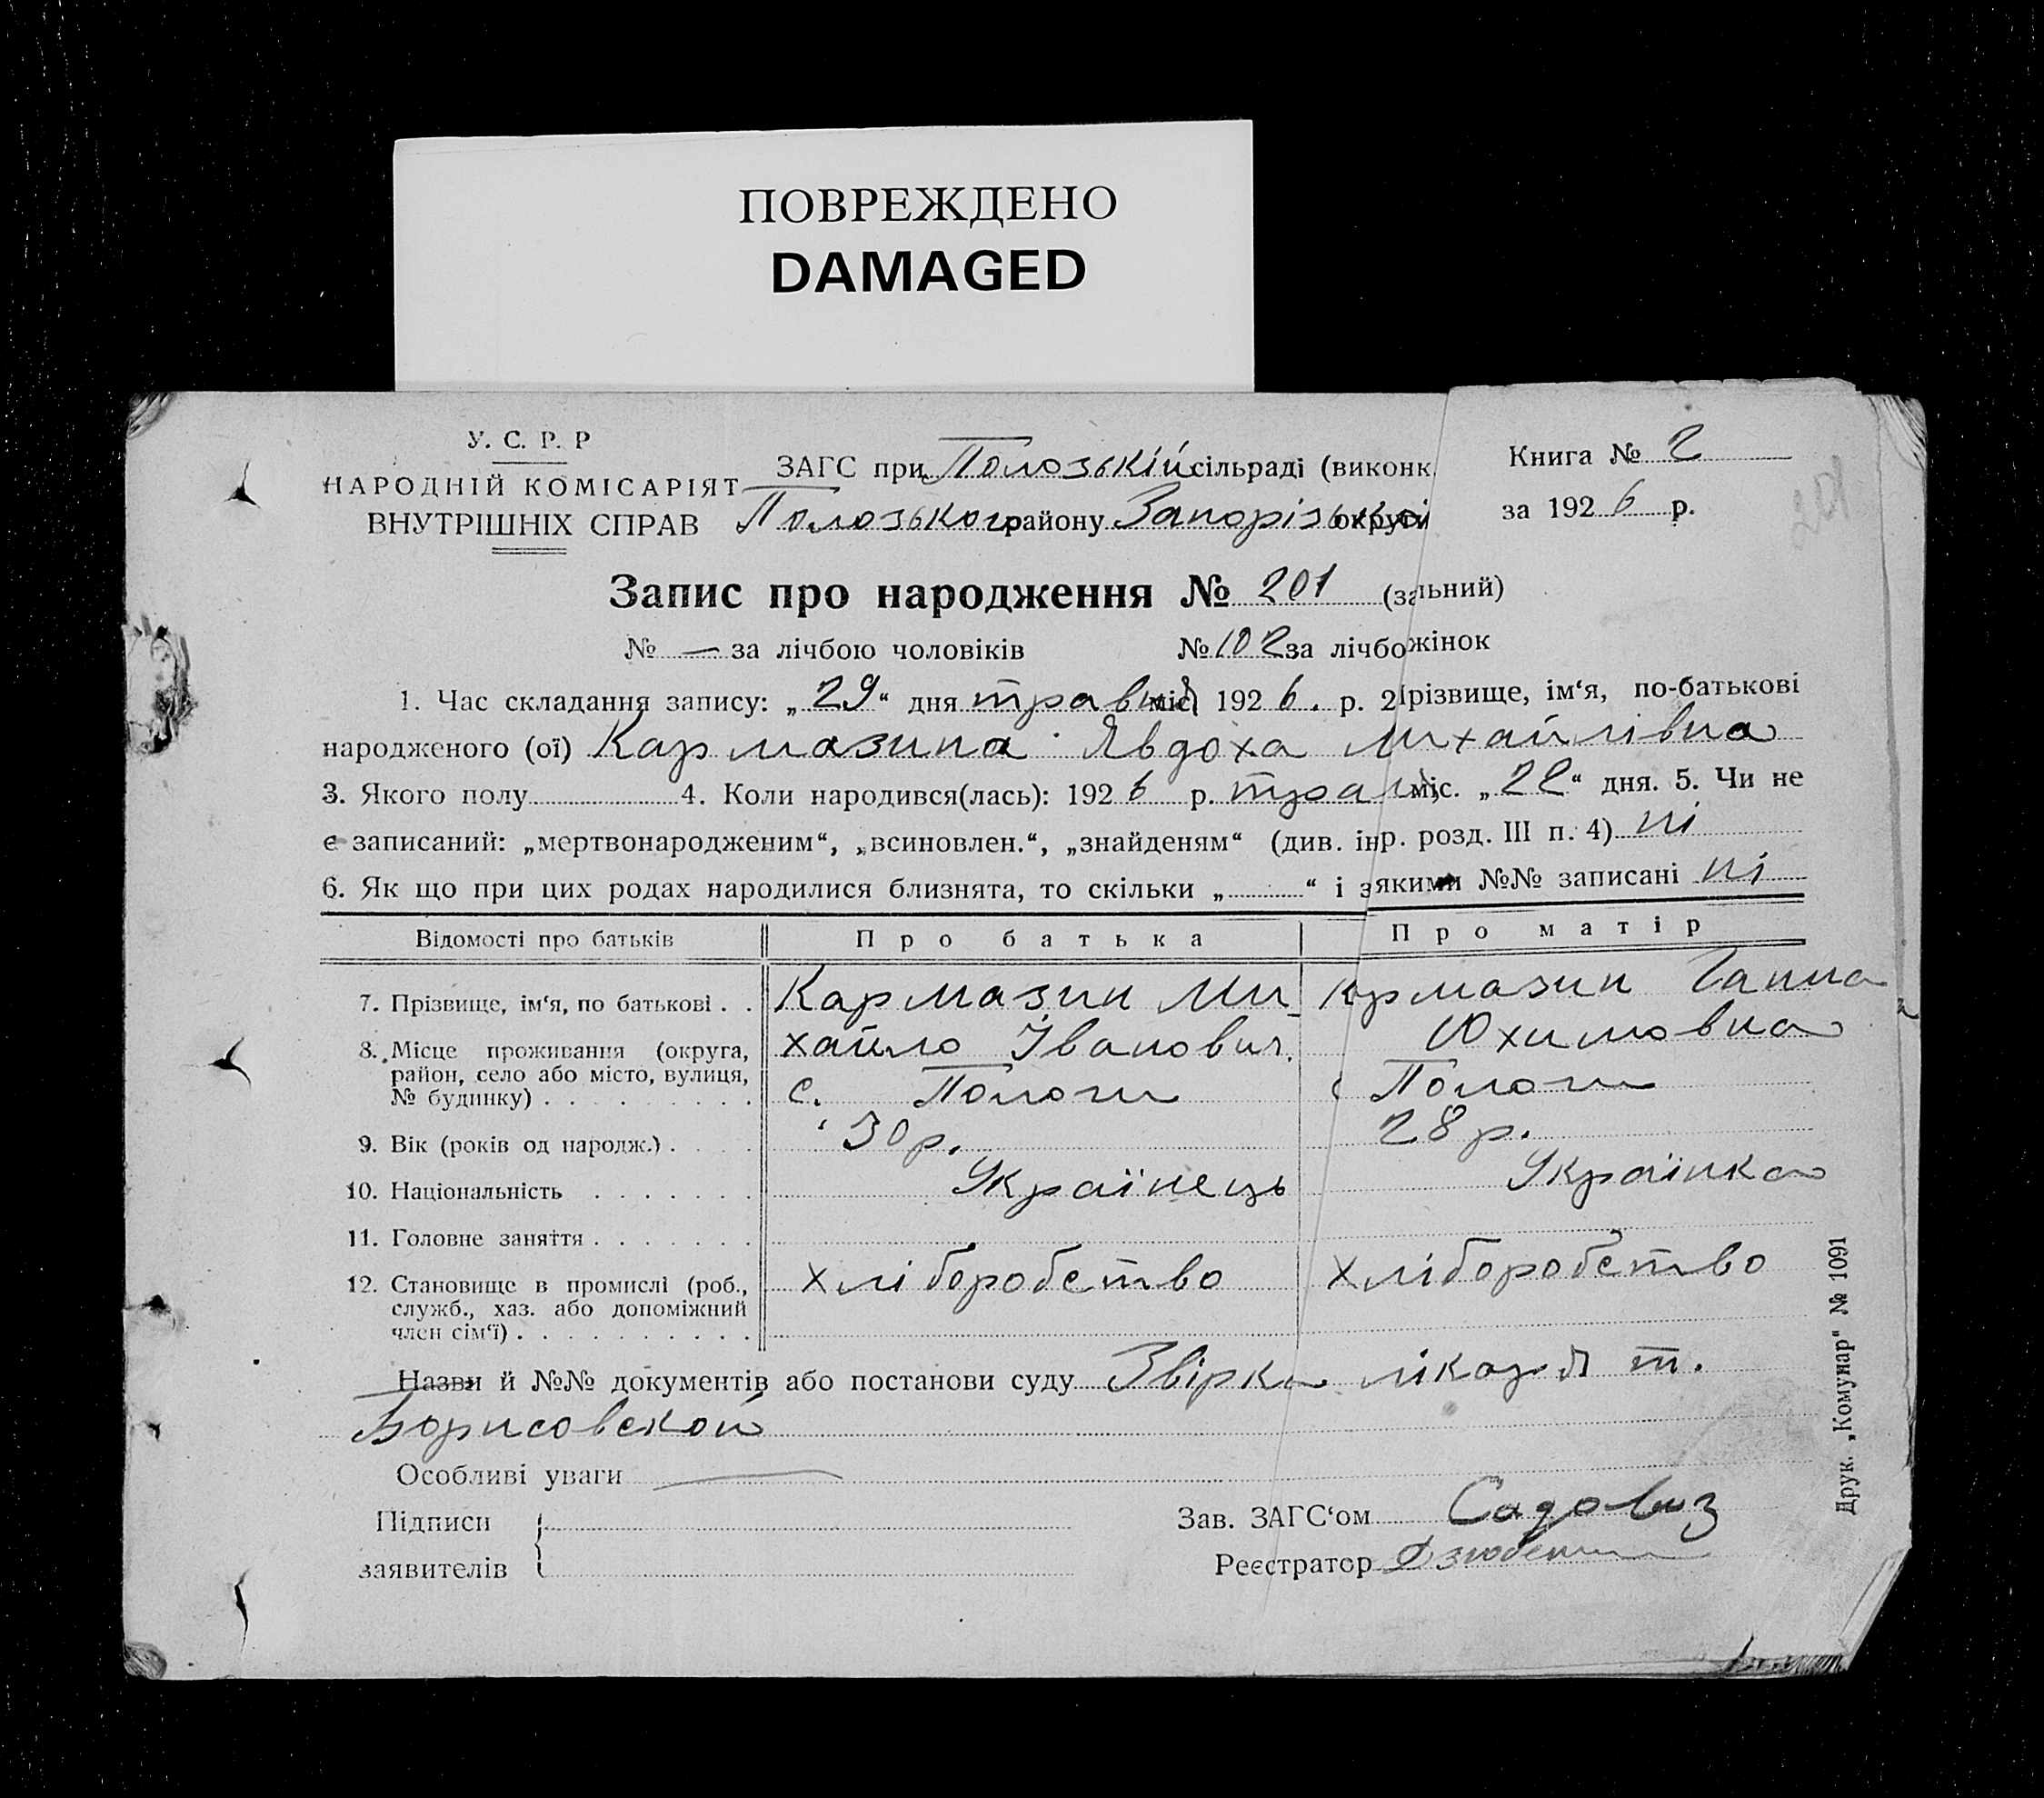 ПОВРЕЖДЕНО
DAMAGED
У. С. Р. Р
НАРОДНІЙ КОМІСАРІЯТ
ВНУТРІШНІХ СПРАВ
ЗАГС при Полозькій сільраді (виконк
Полозького району Запорізької округи
Книга № 2
за 1926 р.
Запис про народження № 201 (за льний)
№ — за лічбою чоловіків № 102 за лічбо жінок
1. Час складання запису: „29“ дня травня міс. 1926. р. 2 прізвище, ім‘я, по-батькові
народженого (ої) Кармазина Явдоха Михайлівна
3. Якого полу 4. Коли народився(лась): 1926 р. трав. міс. „22“ дня. 5. Чи не
є записаний: „мертвонародженим“, „всиновлен.“, „знайденям“ (див. інр. розд. III п. 4) ні
6. Як що при цих родах народилися близнята, то скільки „ “ і з якими №№ записані ні
Відомості про батьків Про батька Про матір
7. Прізвище, ім‘я, по батькові . . Кармазин Ми- Крмазин Ганна
хайло Іванович. Юхимовна
8. Місце проживання (округа,
район, село або місто, вулиця,
№ будинку) . . . . . . . . . с. Пологи с Пологи
9. Вік (років од народж.) . . . . 30 р. 28 р.
10. Національність . . . . . . . Українець Українка
11. Головне заняття . . . . . . .
12. Становище в промислі (роб., хліборобство хліборобство
служб., хаз. або допоміжний
член сім‘ї) . . . . . . . . . .
Назви й №№ документів або постанови суду Звірка лікаря т.
Борисовской
Особливі уваги
Підписи
заявителів
Зав. ЗАГС‘ом
Реєстратор
Друк. „Комунар“ № 1091